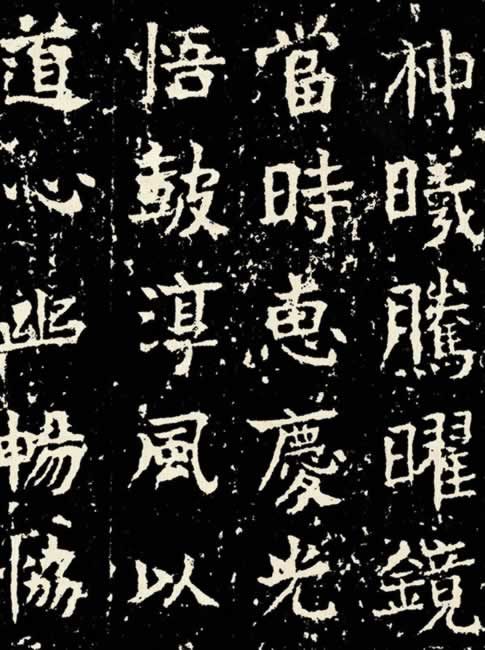 神曦騰曜鏡
當時恵慶光
悟皷淳風以
道心幽暢協